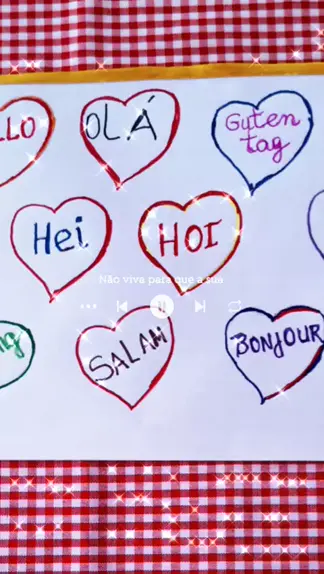 LLO
OLÁ
Guten
tag
Hei
HOI
Não viva para que a sua
ng
SALAM
BONJOUR